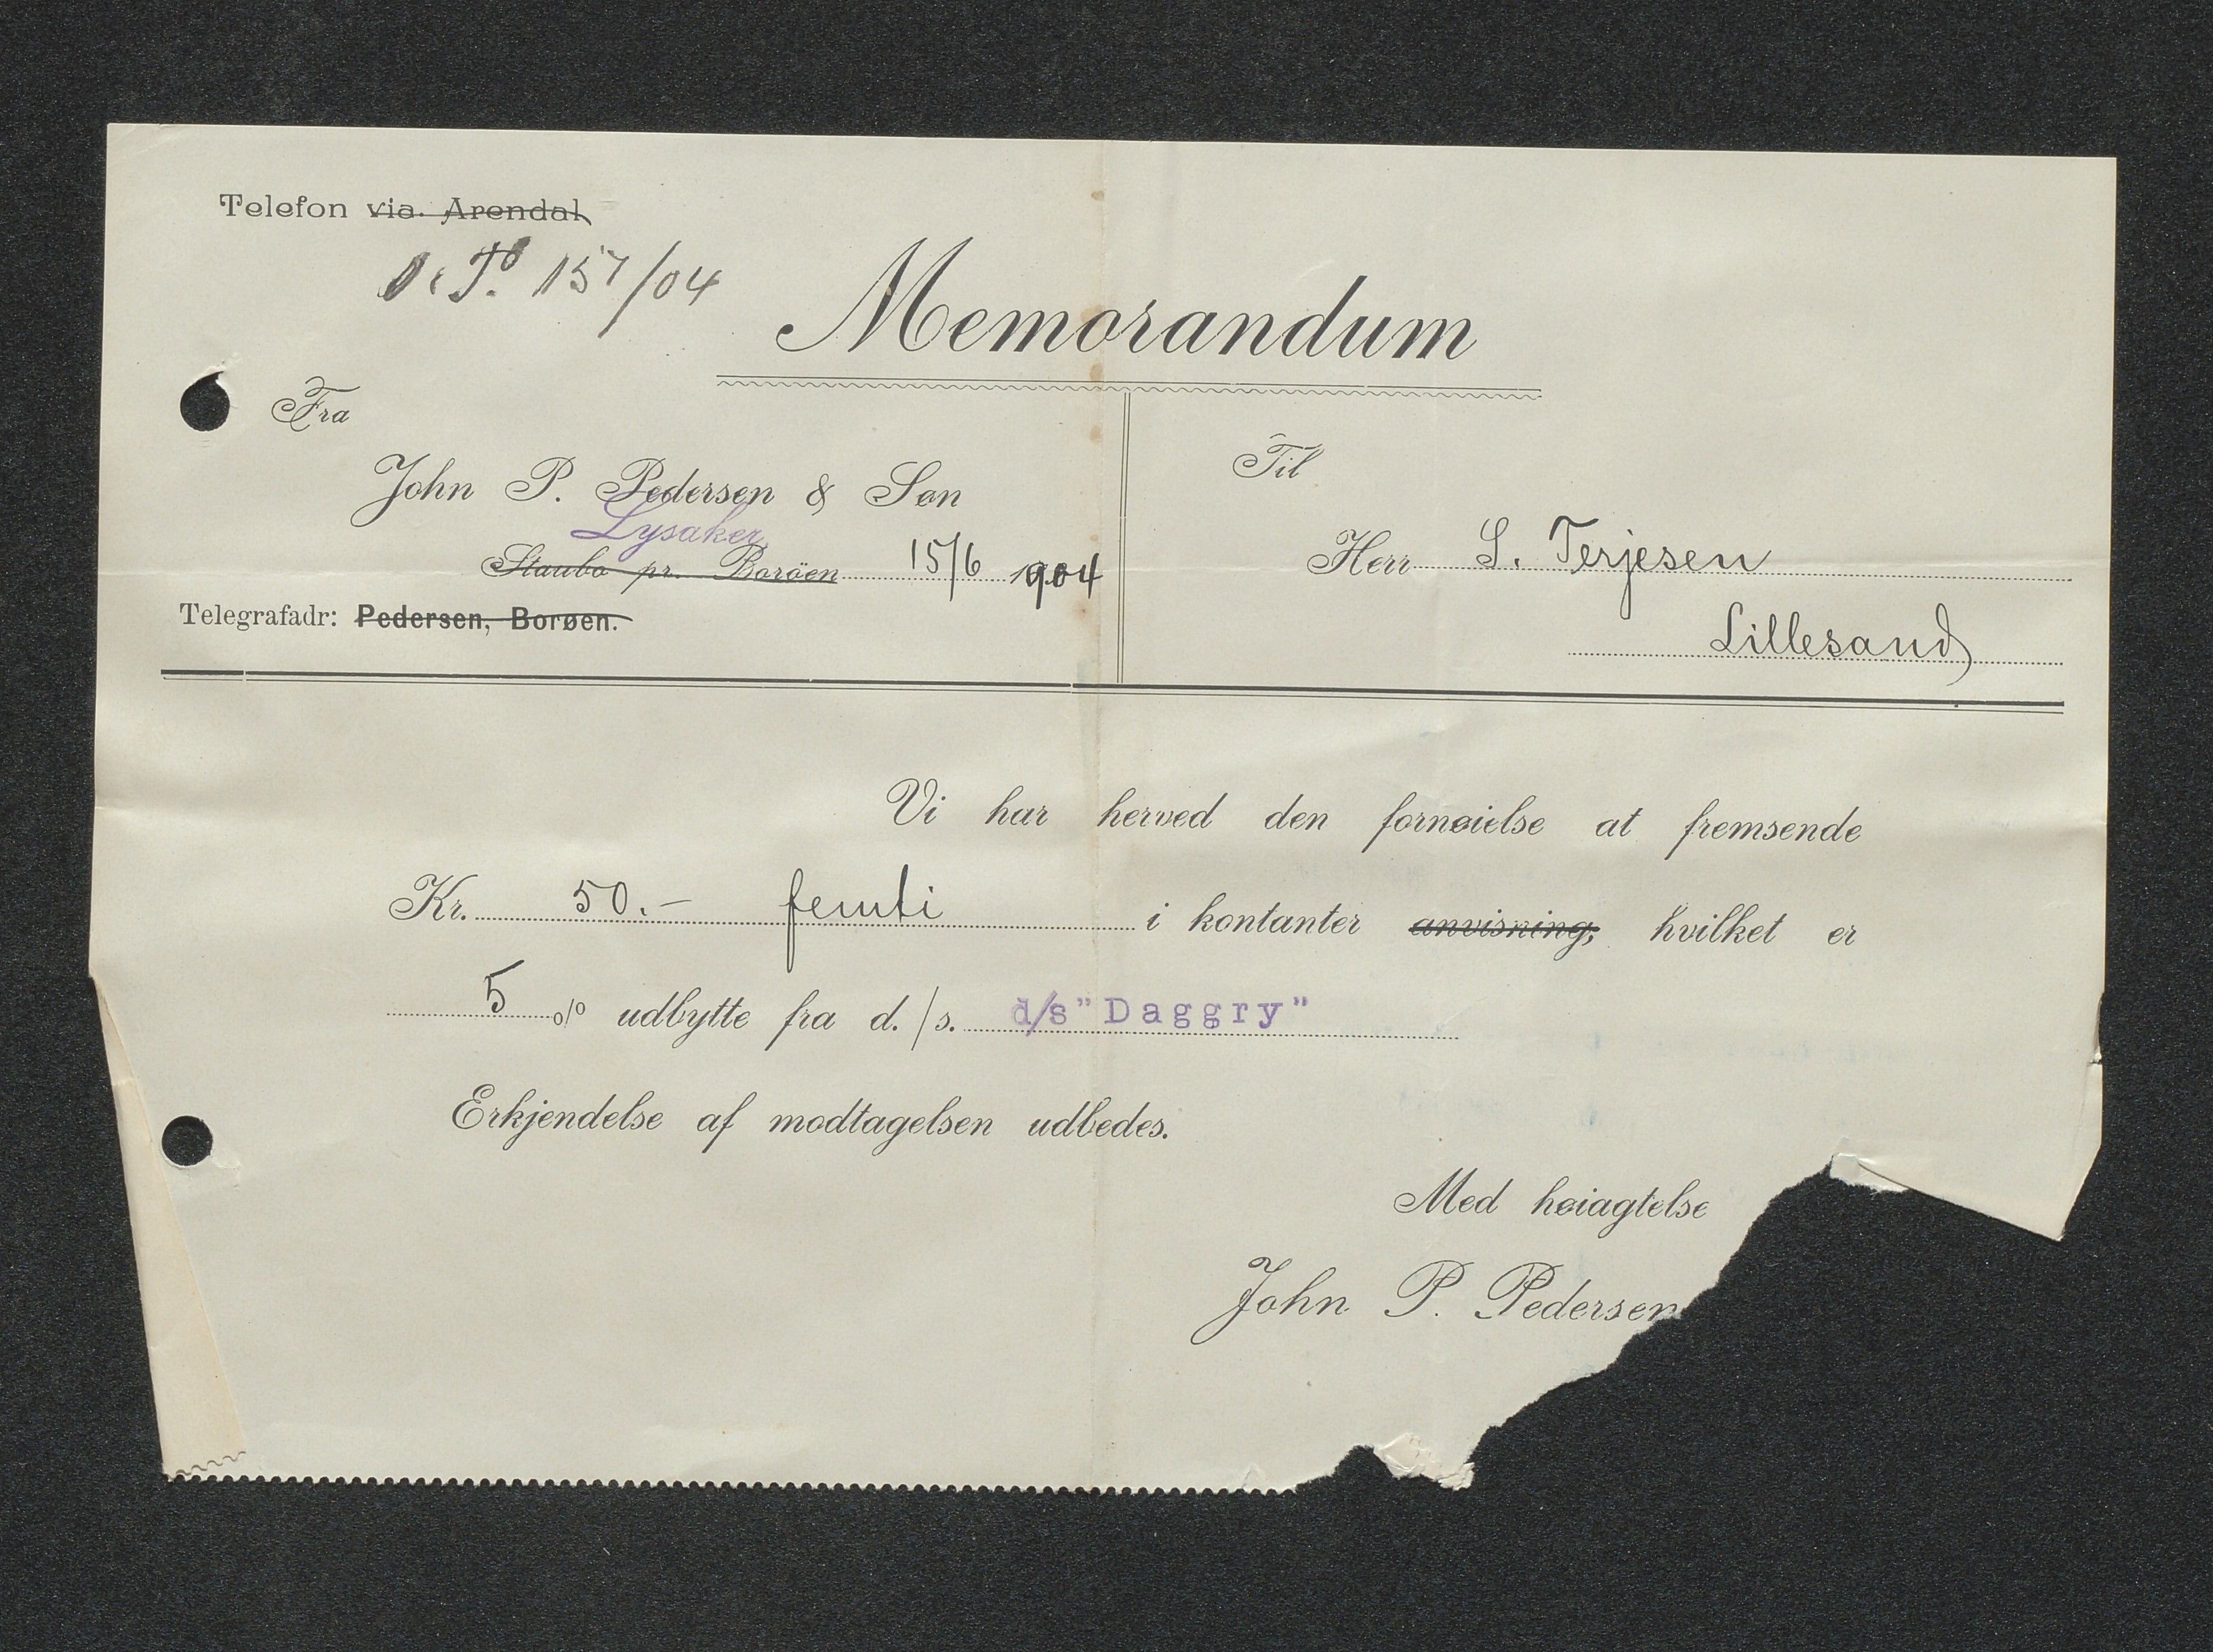 Telefon via Arendal
157/04
Memorandum
Fra
John P. Pedersen & Søn
Lysaker
Staubo pr. Borøen 15/6 1904
Telegrafadr: Pedersen, Borøen.
Til
Herr S. Terjesen
Lillesand
Vi har herved den fornøielse at fremsende
Kr. 50.- femti i kontanter anvisning, hvilket er
5 o/o udbytte fra d./s. d/s "Daggry"
Erkjendelse af modtagelsen udbedes.
Med høiagtelse
John P. Pedersen